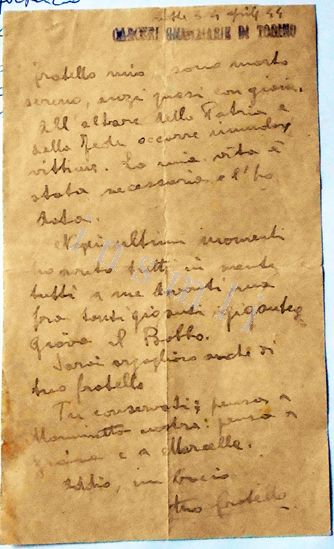 4 aprile 44
CARCERI GIUDIZIARIE DI TORINO
fratello mio sono morto
sereno, anzi quasi con gioia.
All'altare della Patria e
della Fede occorre
vittime. La mia vita è
stata necessaria e l'ho
data.
Negli ultimi momenti
ho avuto tutti in mente
tutti a me davanti ma
fra tanti giganti, gigante
il Babbo.
Sarai orgoglioso anche di
tuo fratello
Tu conservati; pensa a
Mammetta nostra; pensa a
e a Marcella.
Addio, un bacio
tuo fratello